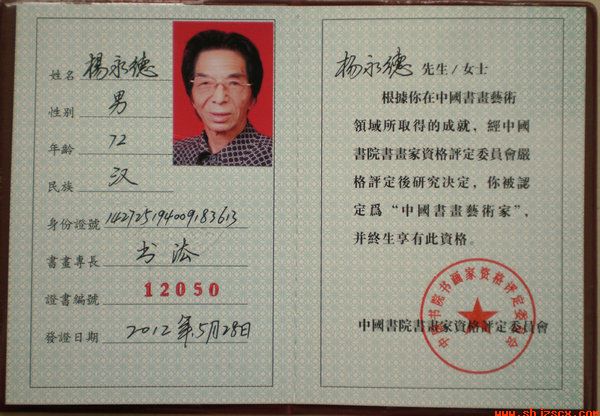 姓名 楊永德
性别 男
年龄 72
民族 汉
身份證號 142725194009183613
書畫專長 书法
證書編號 12050
發證日期 2012年5月28日
杨永德 先生/女士
根據你在中國書畫藝術
領域所取得的成就，經中國
書院書畫家資格評定委員會嚴
格評定後研究决定，你被認
定爲“中國書畫藝術家”，
并終生享有此資格。
中國書院書畫家資格評定委員會
中国书院书画家资格评定委员会
www.shjzscx.com